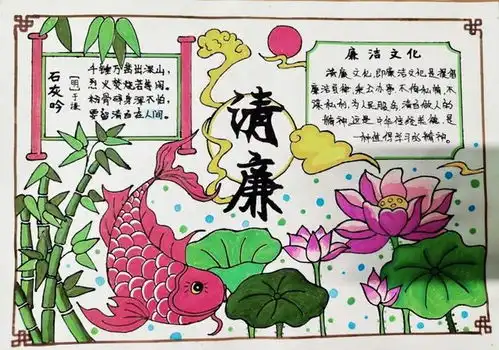 石灰吟
[明]于谦
千锤万凿出深山,
烈火焚烧若等闲。
粉骨碎身浑不怕,
要留清白在人间。
清廉
廉洁文化
清廉文化,即廉洁文化是提倡
廉洁自律,秉公办事,不怕私情,不
谋私利,为人民服务,清白做人的
精神,这是中华传统美德,是
一种值得学习的精神。